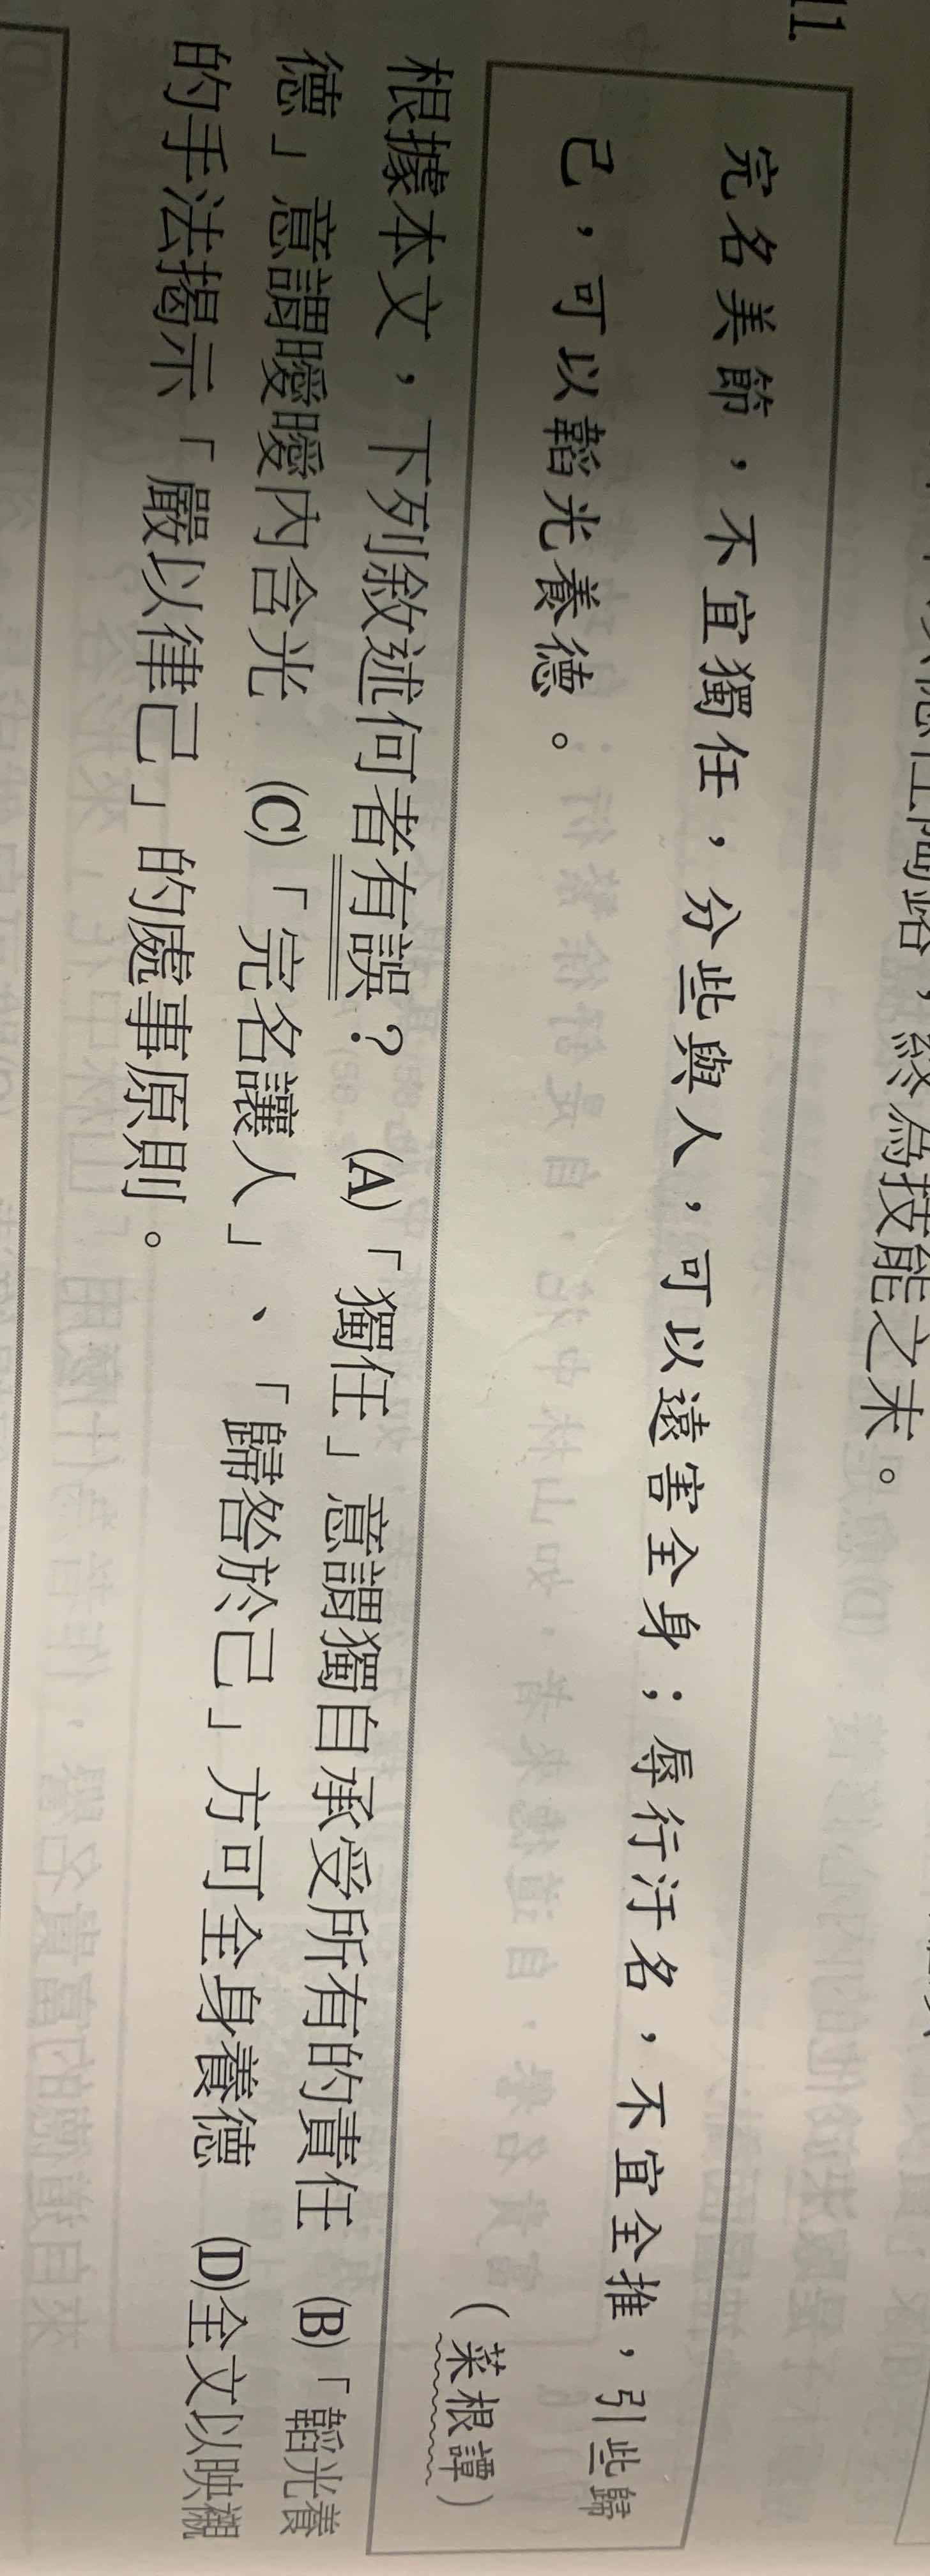 終為技能之末。
11.
完名美節，不宜獨任，分些與人，可以遠害全身；辱行汙名，不宜全推，引些歸
己，可以韜光養德。
（菜根譚）
根據本文，下列敘述何者有誤？　(A)「獨任」意謂獨自承受所有的責任　(B)「韜光養
德」意謂曖曖內含光　(C)「完名讓人」、「歸咎於己」方可全身養德　(D)全文以映襯
的手法揭示「嚴以律己」的處事原則。